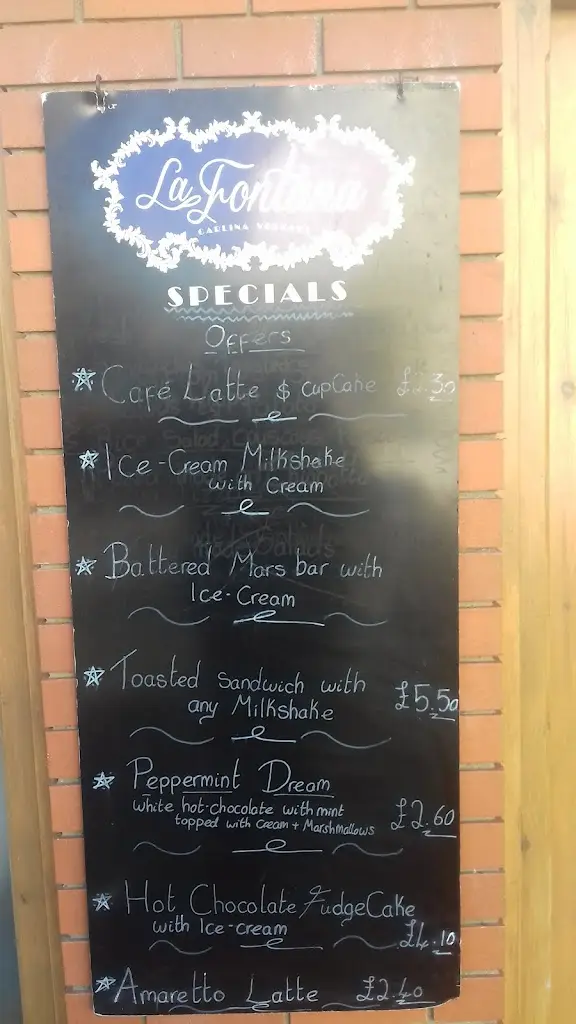 La Fontana
SPECIALS
Offers
Café Latte & Cupcake
Ice-Cream Milkshake
with Cream
Battered Mars bar with
Ice-Cream
Toasted Sandwich with
any Milkshake £5.50
Peppermint Dream
White hot-chocolate with mint
topped with Cream + Marshmallows £2.60
Hot Chocolate FudgeCake
with Ice-cream £4.10
Amaretto Latte £2.40